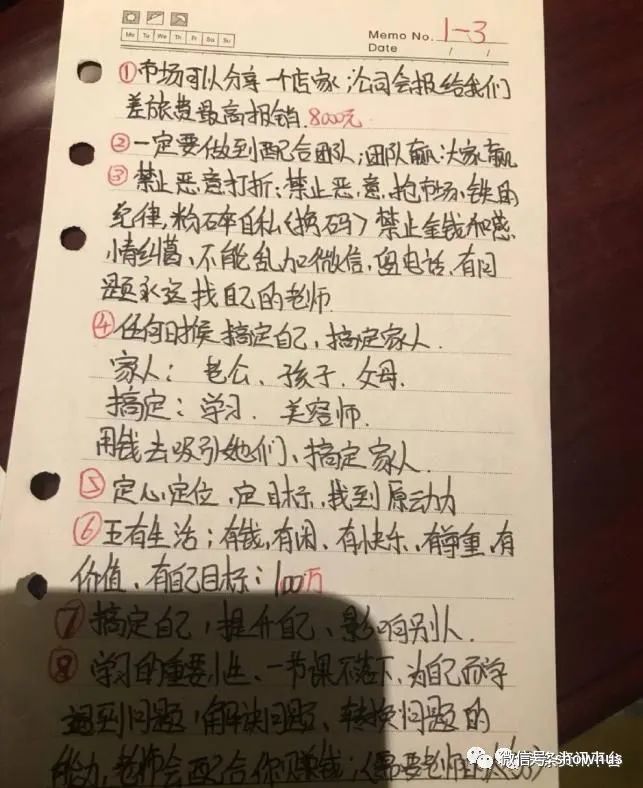 Mo Tu We Th Fr Sa Su
Memo No. 1-3
Date / /
①市场可以分享一个店家；公司会报给我们
差旅费最高报销.8000元
②一定要做到配合团队，团队赢：大家赢
③禁止恶意打折：禁止恶意抢市场，铁的
纪律，粉碎自私〈换码〉禁止金钱和感
情纠葛、不能乱加微信，留电话，有问
题永远找自己的老师
④任何时候搞定自己，搞定家人.
家人：老公、孩子.父母.
搞定：学习. 美容师.
用钱去吸引她们、搞定家人.
⑤定心.定位，定目标、找到原动力
⑥五有生活；有钱，有闲、有快乐、有尊重，有
价值、有自己目标：100万
⑦搞定自己，提升自己、影响别人.
⑧学习的重要性、一节课不落下、为自己而学
遇到问题，解决问题、转换问题的
能力，老师会配合你赚钱；
微信号 showhus